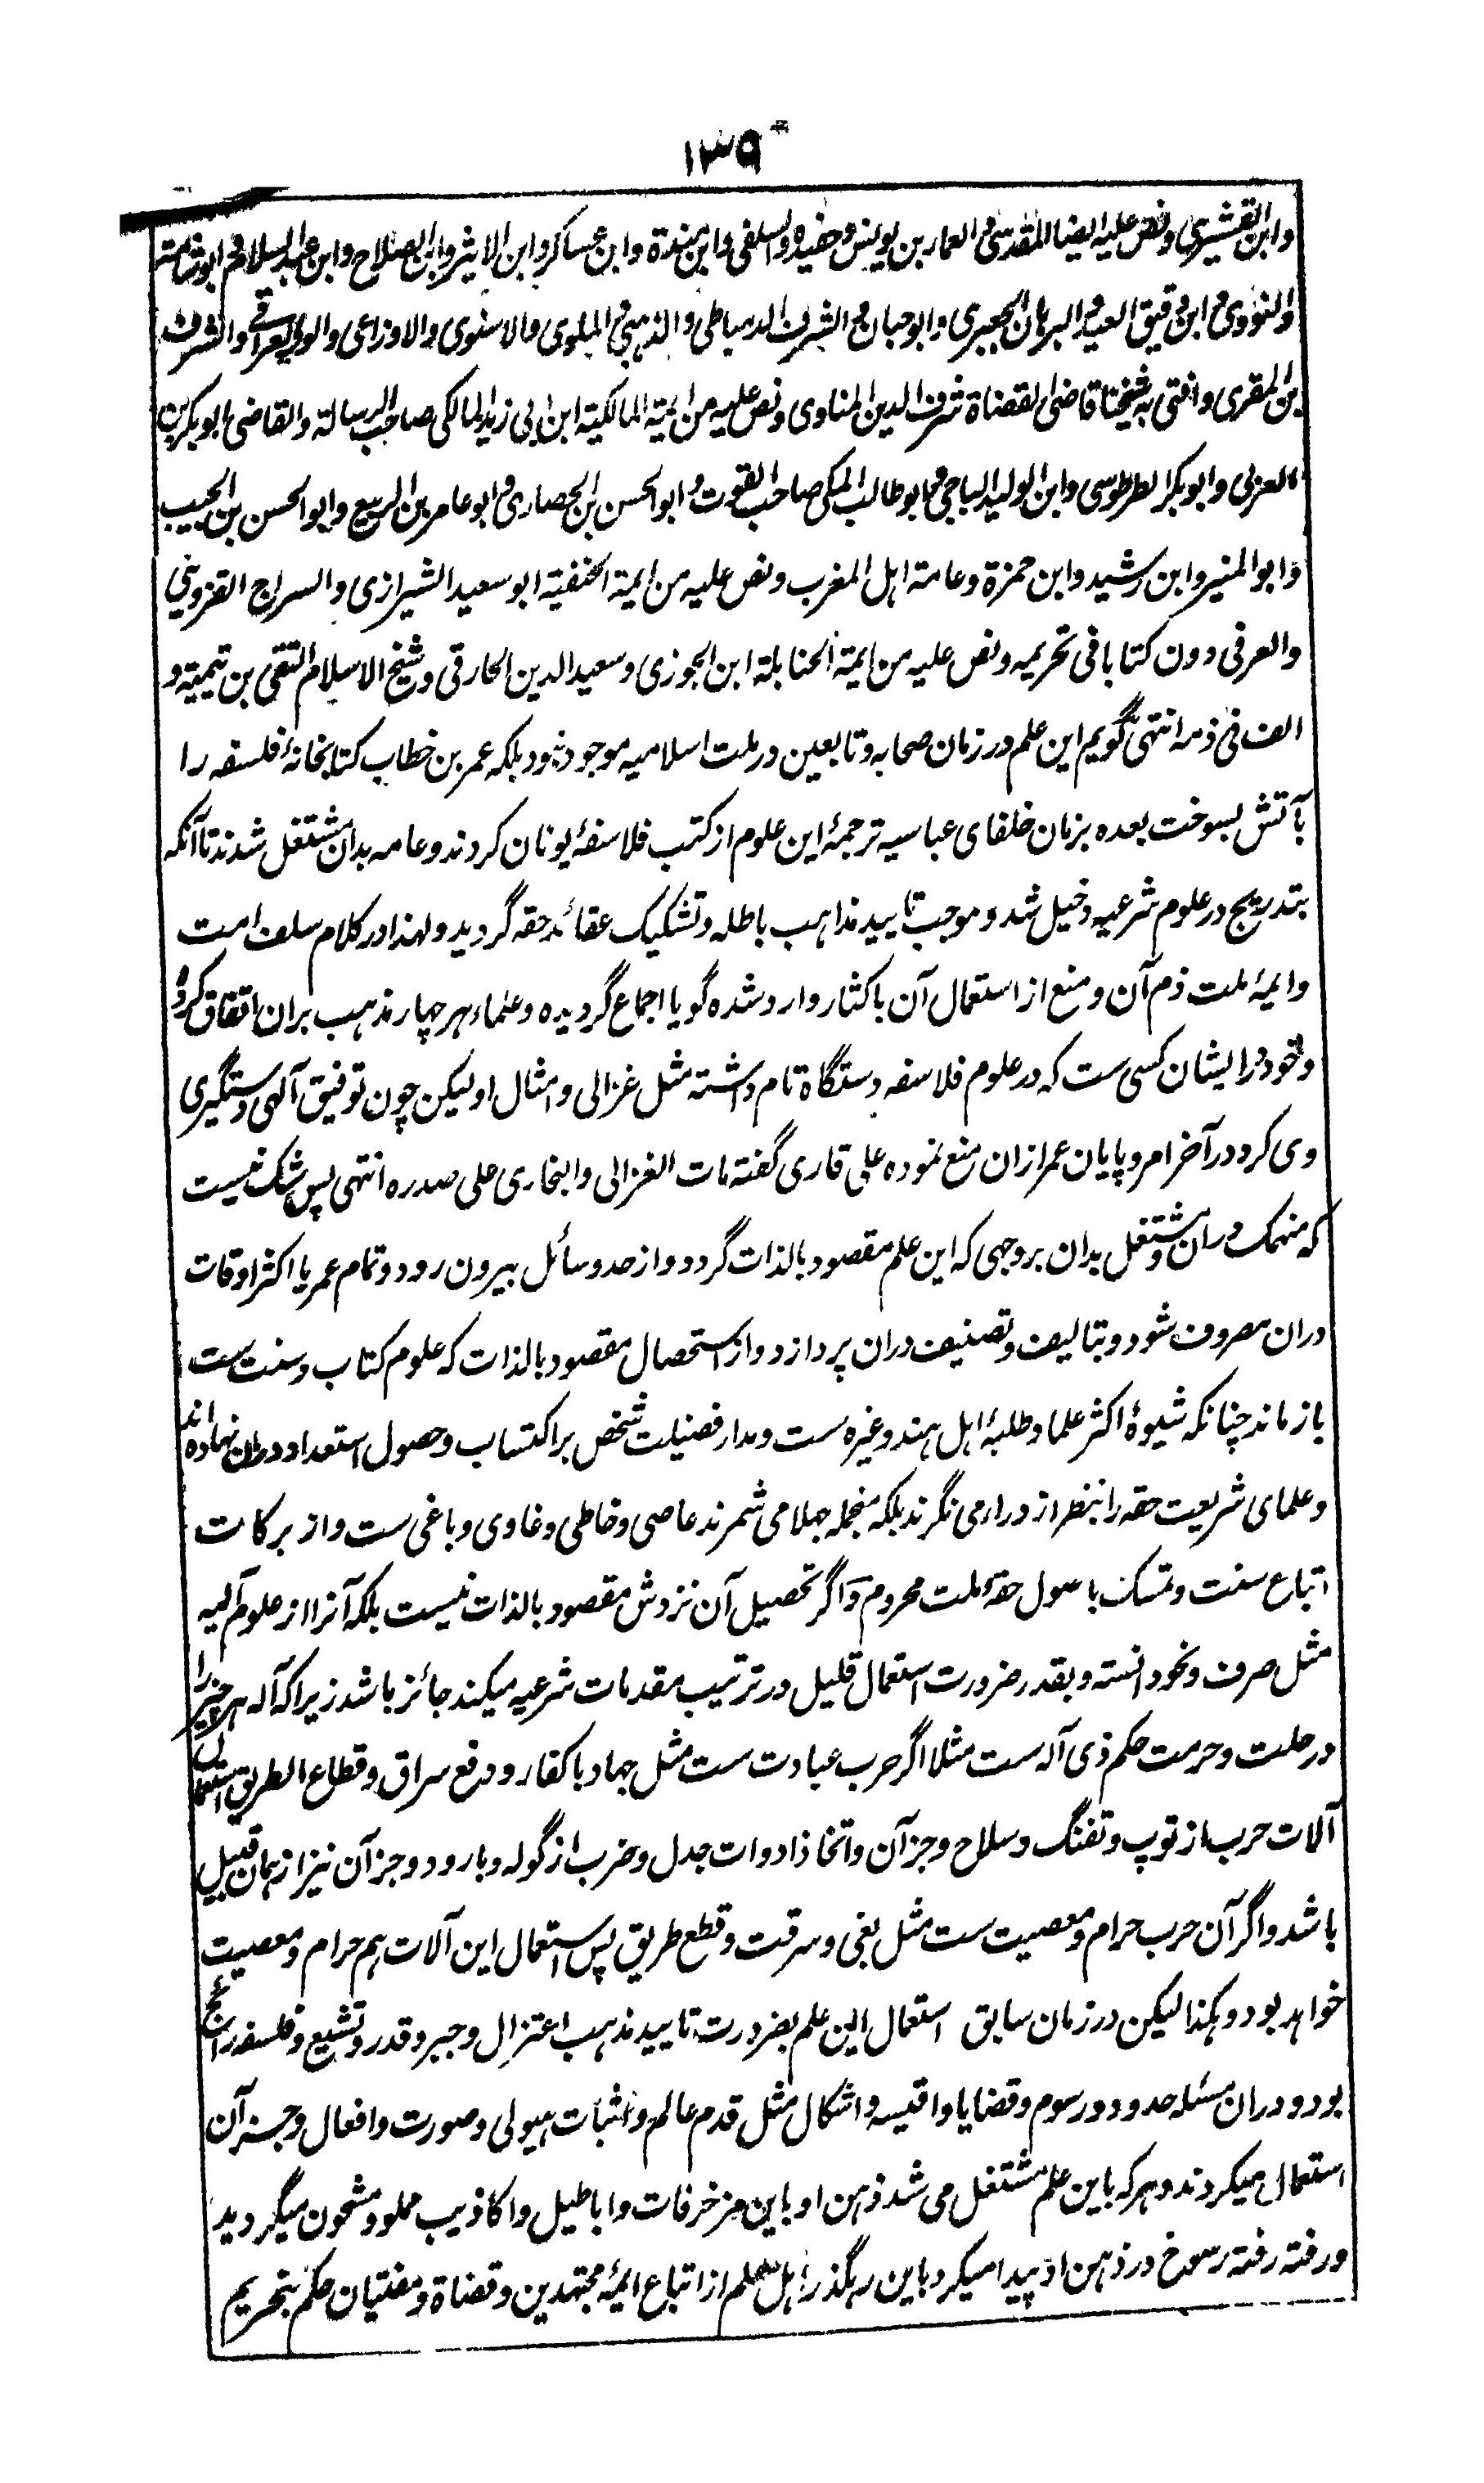 ١٣٩
وابن القشیری ونص علیه ایضا المقدسی والعمار بن یونس وحفیده والسلفی وابن منده وابن عساکر وابن الاثیر وابن الصلاح وابن عبدالسلام وابوشامة
والنووی وابن دقیق العید والبرهان الجعبری وابوحیان والشرف الدمیاطی والذهبی والملوی والاسنوی والاوزاعی والولی العراقی والشرف
بن المقری وافتی به شیخنا قاضی القضاة شرف الدین المناوی ونص علیه من ائیة المالکیة ابن ابی زید المالکی صاحب الرسالة والقاضی ابوبکر بن
العربی وابوبکر الطرطوسی وابن الولید الباجی وابوطالب المکی صاحب القوت وابوالحسن بن الحصاری وابوعامر بن الربیع وابوالحسن بن الحبیب
وابوالمنیر وابن رشید وابن حمزة وعامة اهل المغرب ونص علیه من ایمة الحنفیة ابوسعید الشیرازی والسراج القزوینی
والعرفی دون کتابا فی تحریمه ونص علیه من ایمة الحنابلة ابن الجوزی وسعید الدین الحارقی وشیخ الاسلام التقی بن تیمیة و
الف فی ذمه انتهی گویم این علم در زمان صحابه وتابعین در ملت اسلامیه موجود نبود بلکه عمر بن خطاب کتابخانهٔ فلسفه را
بآتش بسوخت بعده بزمان خلفای عباسیه ترجمهٔ این علوم از کتب فلاسفهٔ یونان کردند وعامه بدان مشتغل شدند تا آنکه
بتدریج در علوم شرعیه دخیل شد و موجب تایید مذاهب باطله وتشکیک عقائد حقه گردید ولهذا در کلام سلف امت
وایمهٔ ملت ذم آن ومنع از استعمال آن باکثار وارد شده گویا اجماع گردیده وعلماء هر چهار مذهب بران اتفاق کرده
وخود در ایشان کسی ست که در علوم فلاسفه دستگاه تام داشته مثل غزالی وامثال او لیکن چون توفیق آلهی دستگیری
وی کرد در آخر امر وپایان عمر ازان منع نموده علی قاری گفته مات الغزالی والبخاری علی صدره انتهی پس شک نیست
که منهمک دران ومشتغل بدان بر وجهی که این علم مقصود بالذات گردد واز حد وسائل بیرون رود وتمام عمر یا اکثر اوقات
دران مصروف شود وبتالیف وتصنیف دران پردازد واز استحصال مقصود بالذات که علوم کتاب وسنت ست
باز ماند چنانکه شیوهٔ اکثر علما وطلبهٔ اهل هند وغیره ست ومدار فضیلت شخص بر اکتساب وحصول استعداد دران نهاده اند
وعلمای شریعت حقه را بنظر از دراء می نگرند بلکه منجمله جهلا می شمرند عاصی وخاطی وغاوی وباغی ست واز برکات
اتباع سنت وتمسک باصول حقهٔ ملت محروم واگر تحصیل آن نزدش مقصود بالذات نیست بلکه آنرا از علوم آلیه
مثل صرف ونحو دانسته وبقدر ضرورت استعمال قلیل در ترتیب مقدمات شرعیه میکند جائز باشد زیرا که آله هر چیز را
در حلت وحرمت حکم ذی آله ست مثلا اگر حرب عبادت ست مثل جهاد با کفار ودفع سراق وقطاع الطریق استعمال
آلات حرب از توپ وتفنگ وسلاح وجز آن واتخاذ ادوات جدل وضرب از گوله وبارود وجز آن نیز از همان قبیل
باشد واگر آن حرب حرام ومعصیت ست مثل بغی وسرقت وقطع طریق پس استعمال این آلات هم حرام ومعصیت
خواهد بود وهکذا لیکن در زمان سابق استعمال این علم بضرورت تایید مذهب اعتزال وجبر وقدر وتشیع وفلسفه رائج
بود ودران مسئله حدود ورسوم وقضایا واقیسه واشکال مثل قدم عالم واثبات هیولی وصورت وافعال وجز آن
استعمال میکردند وهر که باین علم مشتغل می شد ذهن او باین مزخرفات واباطیل واکاذیب مملو ومشحون میگردید
ورفته رفته رسوخ در ذهن او پیدا میکرد باین رهگذر اهل علم از اتباع ایمهٔ مجتهدین وقضاة ومفتیان حکم بتحریم